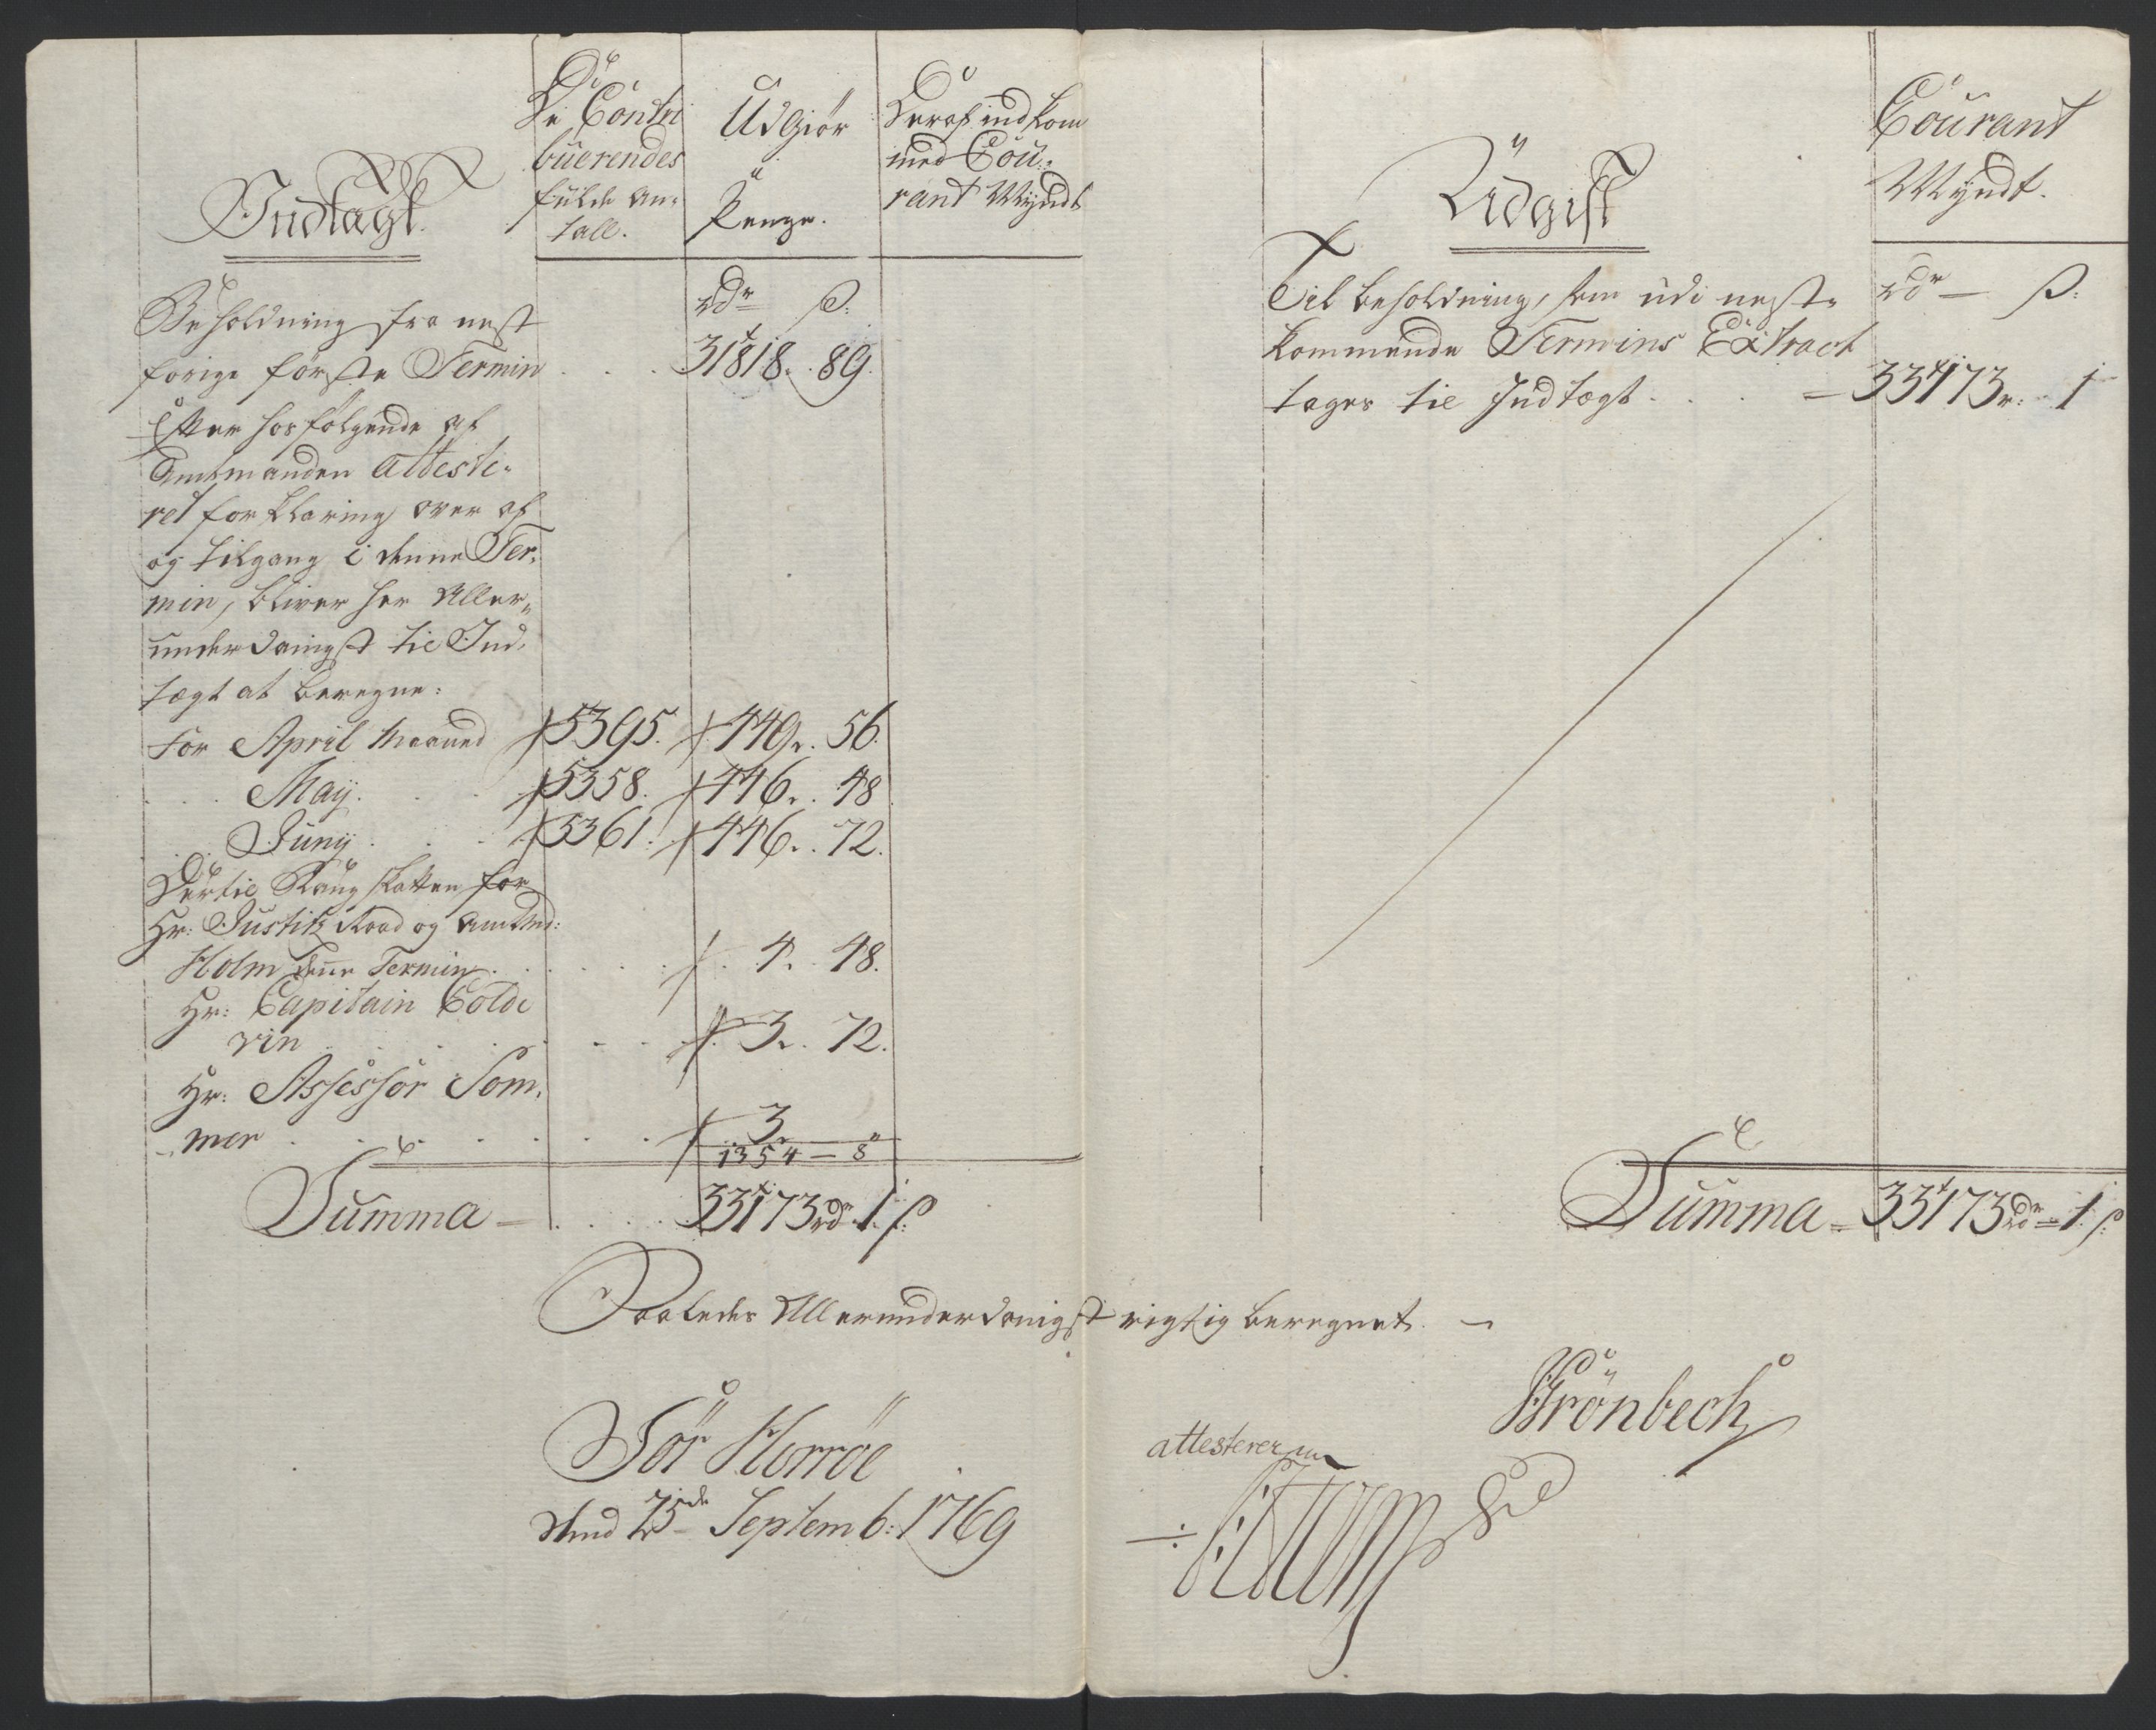 Indtægt.
De Contri
buerendes
fulde An-
tall.
Udgiør
Penge.
Deraf indkom
med Cou-
rant Myndt
Beholdning fra nest
forige første Termin . . . 31818. 89.
Efter hosfølgende af
Amtmanden Attesti-
ret forklaring over af
og tilgang i denne Ter-
min, bliver her Aller-
underdanigst til Ind-
tægt at beregne:
rdr ß:
For April Maaned 5395. 449. 56.
May. 5358. 446. 48
Junÿ 5361. 446. 72.
Dertil Rang skatten for
Hr: Justitz Raad og Amtmd:
Holm denne Termin . . . 4. 48.
Hr: Capitain Colde
vin . . . 3. 72.
Hr: Assessor Som-
mer . . . 3.
1354 — 8
Summa — . . . 33173 rdr 1 ß
Udgift
Courant
Myndt.
rdr — ß:
Til beholdning, som udi nest-
kommende Termins Extract
tages til Indtægt . . . — 33173. 1
Summa = 33173 rdr = 1 ß
Saaledes Allerunderdanigst rigtig beregnet. —
Sör Herröe
dend 25de Septemb: 1769
Grönbech
attesterer
Holm